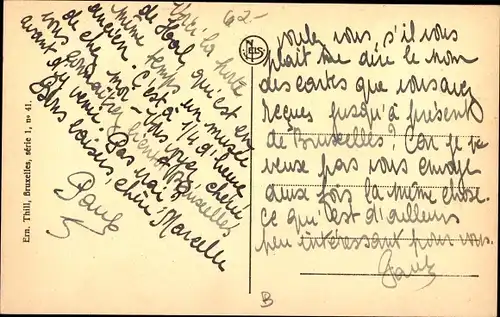 62-
Voici la porte
de Hal, qui est en
même temps un musée
ancien. C'est à 1/4 d'heure
de chez moi - vous voyez, chérie
vous connaîtrez bientôt Bruxelles,
avant d'y venir. Pas vrai?
Bons baisers, chère Marcelle
Paul
5
NELS
Voulez vous, s'il vous
plaît me dire le nom
des cartes que vous avez
reçues jusqu'à présent
de Bruxelles? Car je ne
veux pas vous envoyer
deux fois la même chose.
Ce qui est d'ailleurs
peu intéressant pour vous.
Paul
B
Ern. Thill, Bruxelles, série 1, n° 41.